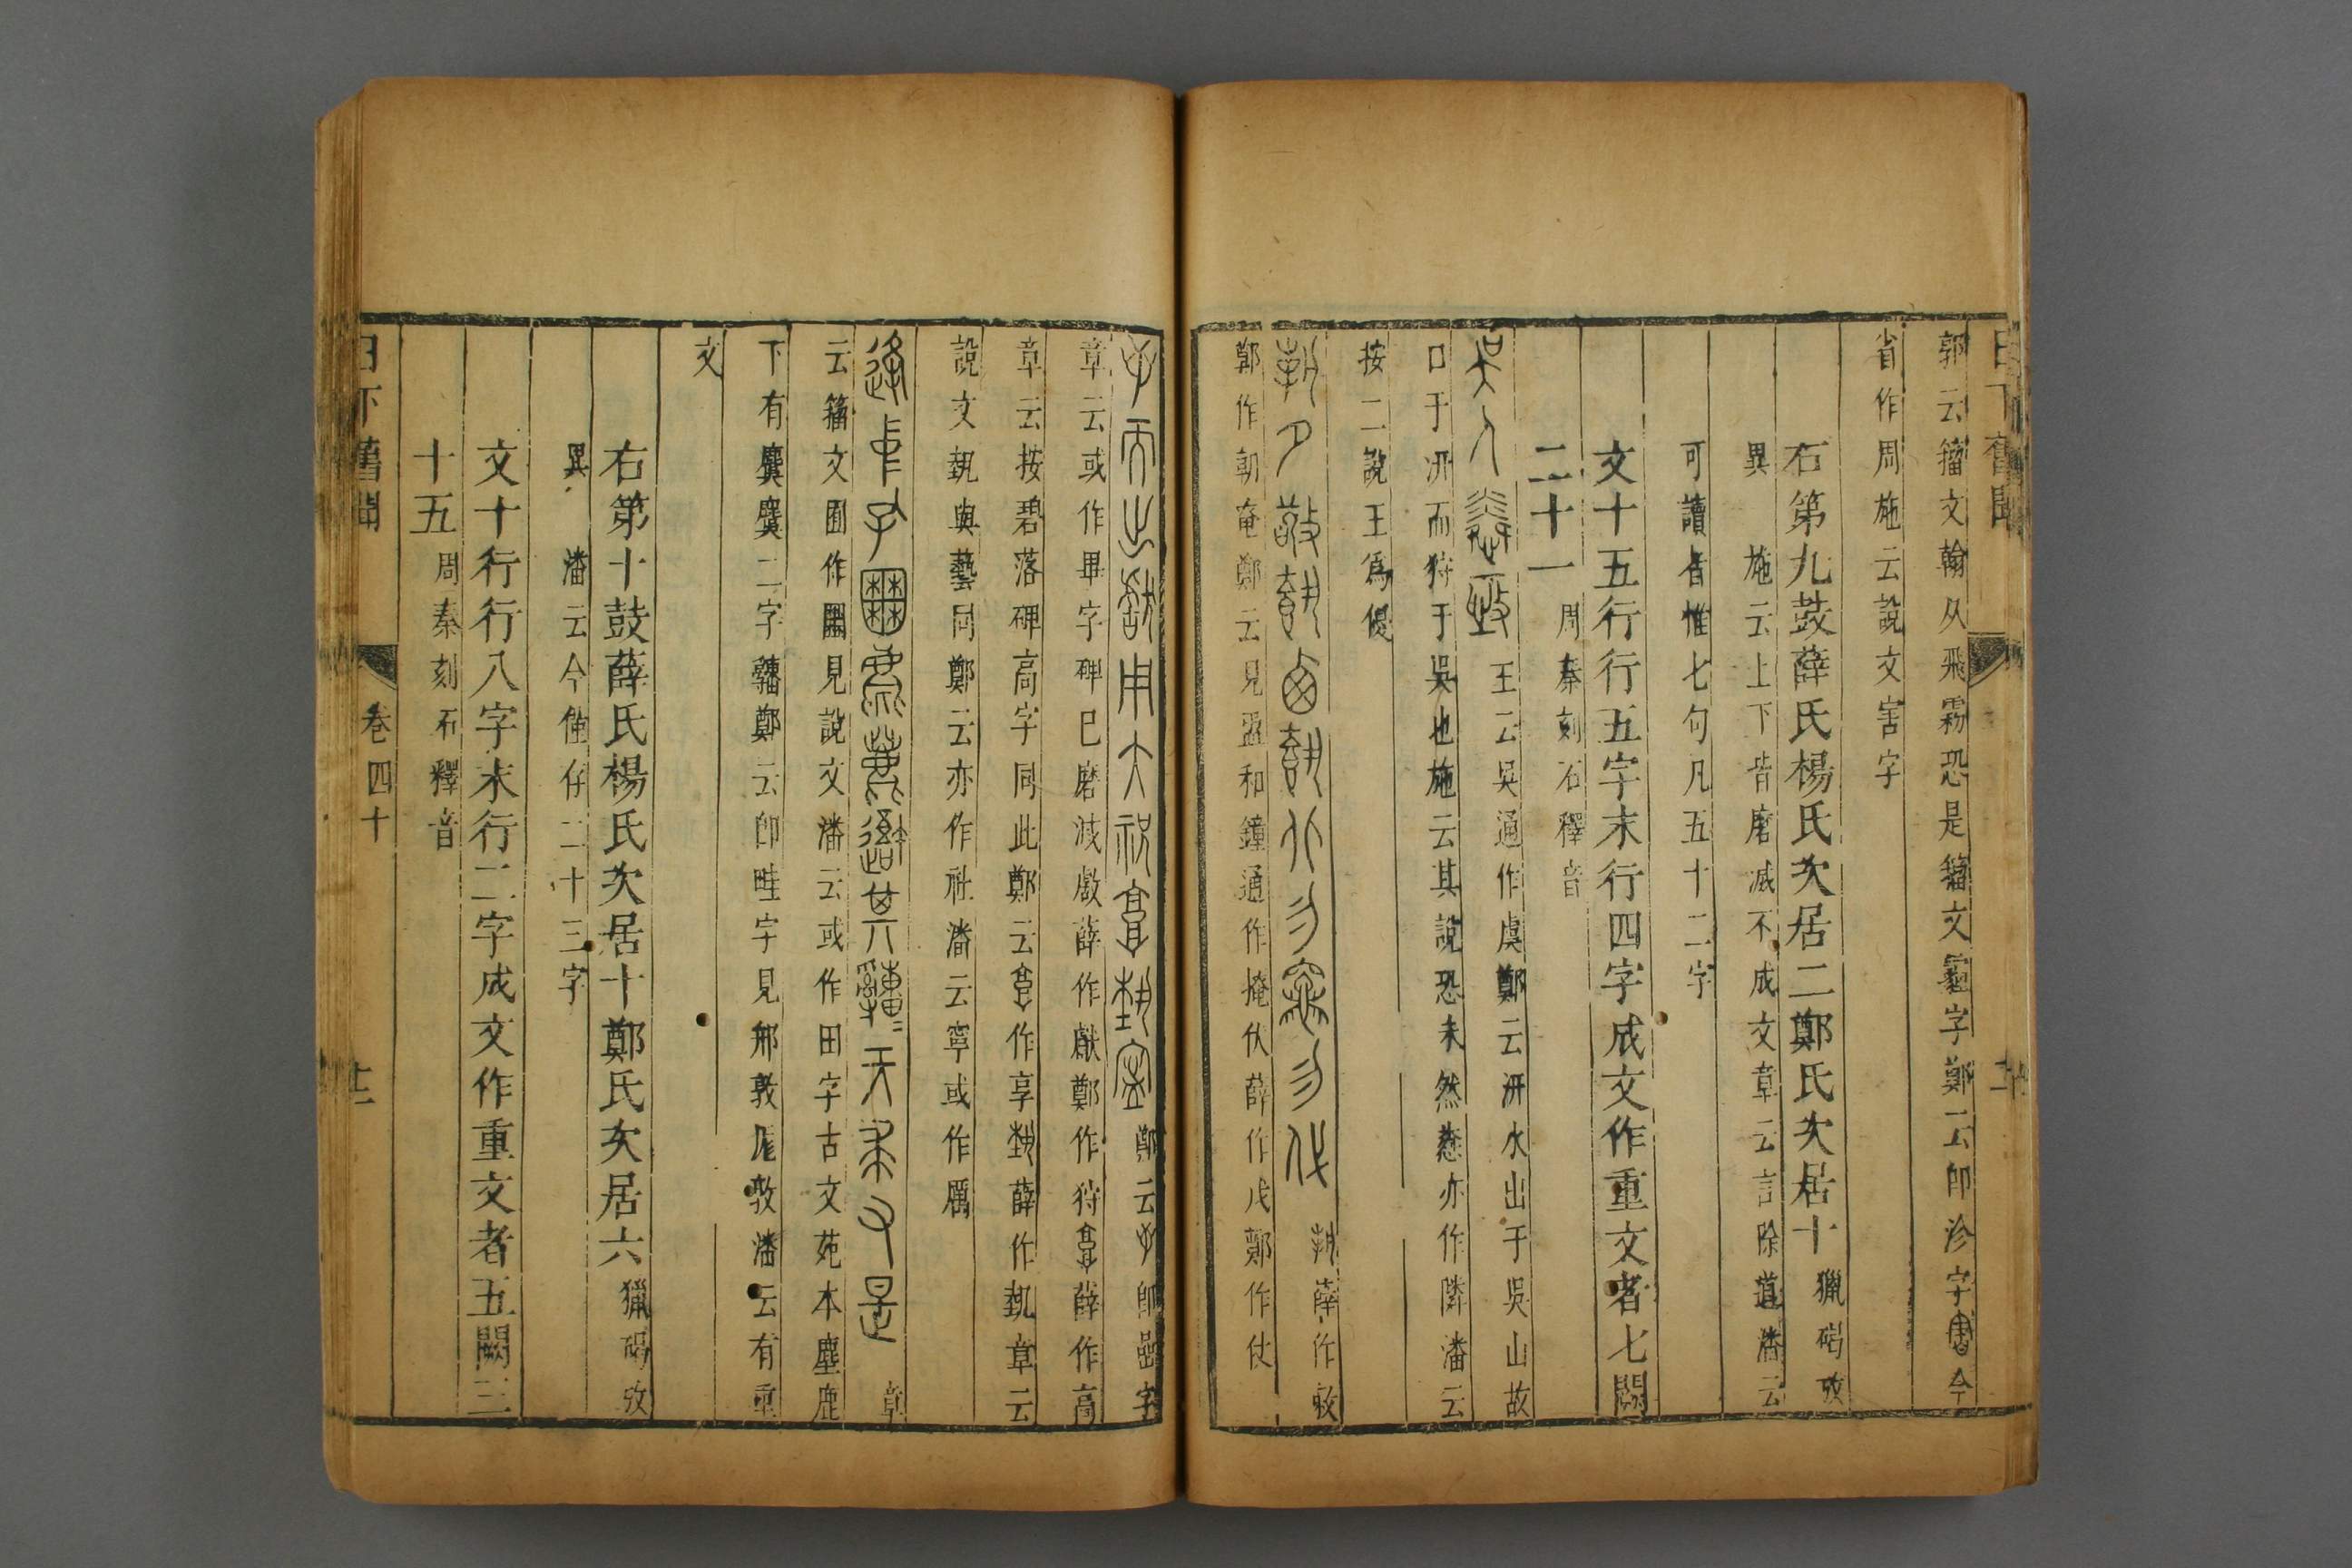 日下舊聞
郭云籀文翰从飛霧恐是籀文字鄭云即沴字今
省作周施云說文害字
右第九鼓薛氏楊氏次居二鄭氏次居十獵碣攷
異 施云上下皆磨滅不成文章云言除道潘云
可讀者惟七句凡五十二字
文十五行行五字末行四字成文作重文者七闕
二十一周秦刻石釋音
吳人憐亟王云吳通作虞鄭云汧水出于吳山故
口于汧而狩于吳也施云其說恐未然憖亦作隣潘云
按二說王為優
朝夕敬薛作敇
鄭作朝奄鄭云見盄和鐘通作掩伏薛作戍鄭作伏
而出用大祝鄭云即字
章云或作畢字碑已磨滅薛作獻鄭作狩薛作高
章云按碧落碑高字同此鄭云作享薛作執章云
說文執與藝同鄭云亦作社潘云寧或作厲
逢中孔囿其天求又是章
云籀文囿作見說文潘云或作田字古文苑本塵鹿
下有二字鄭云即畦字見邢敦敦潘云有重
文
右第十鼓薛氏楊氏次居十鄭氏次居六獵碣攷
異 潘云今僅存二十三字
文十行行八字末行二字成文作重文者五闕三
十五周秦刻石釋音
日下舊聞 卷四十